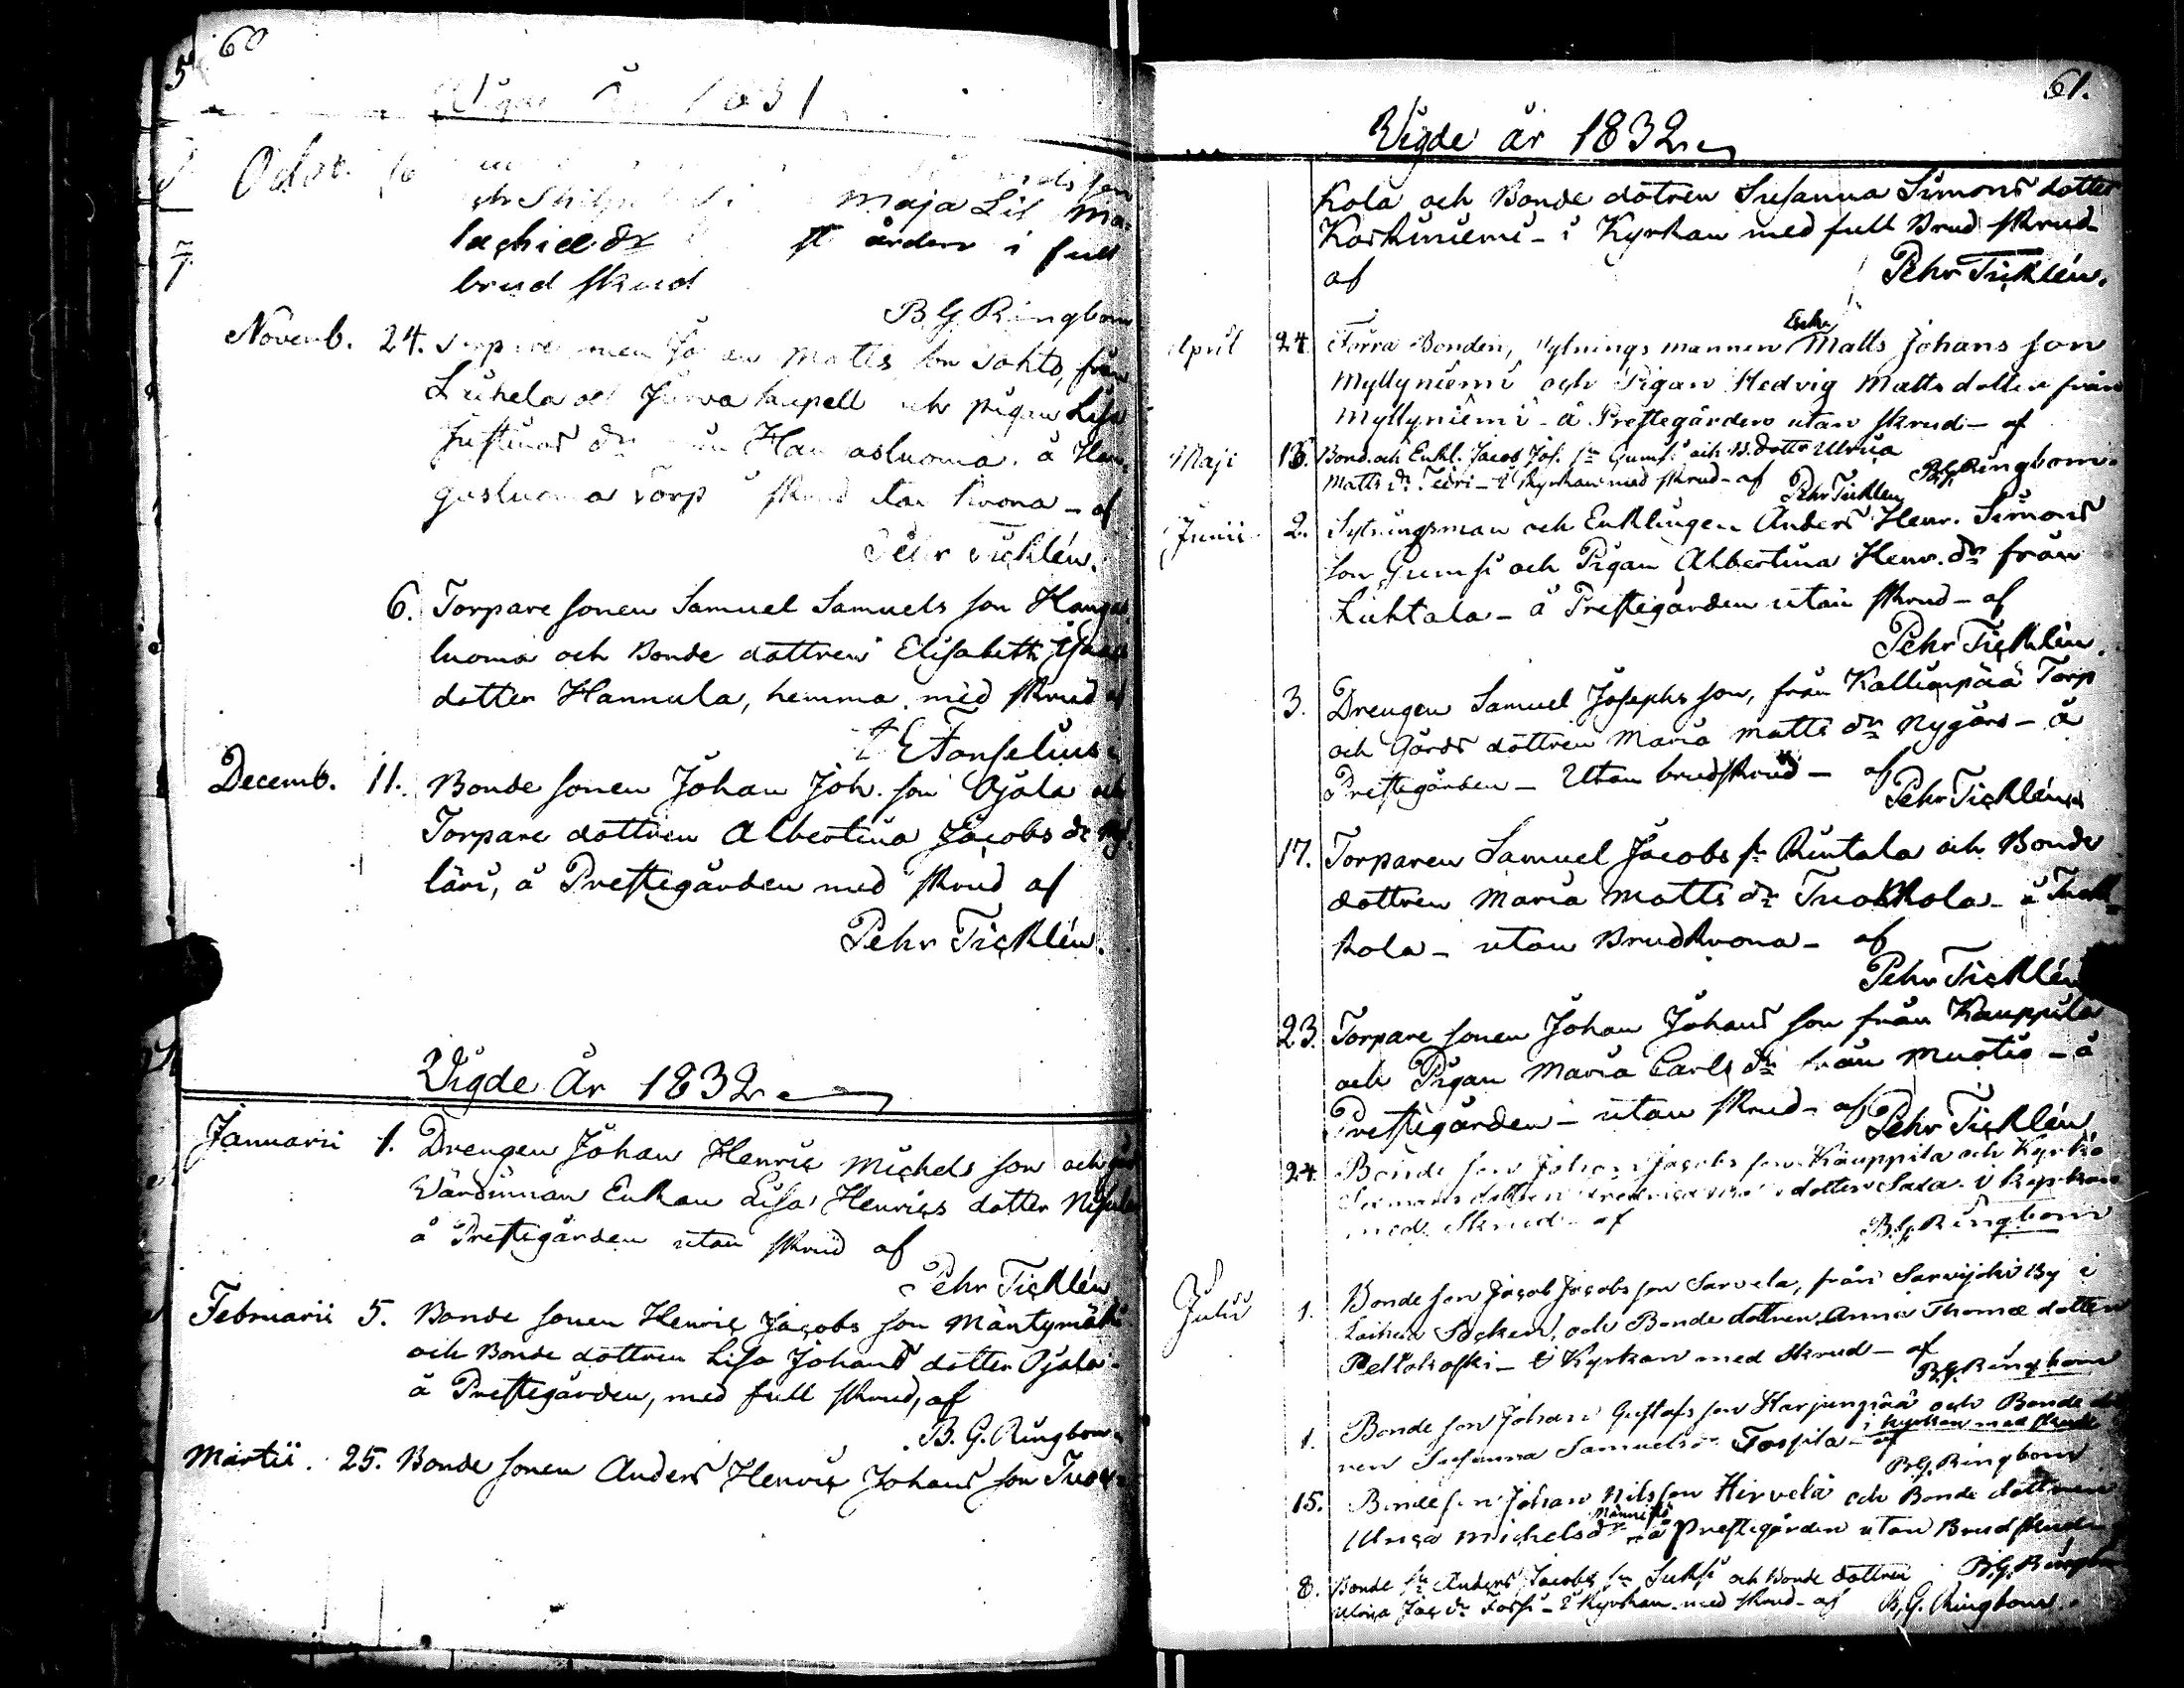 60
Vigde År 1831
Octob.
Maja Lis Ma-
lachiedr i full
brud skrud
B G Ringbom
Novemb. 24. Matts son Sohto, från
Luhela och kapell och pigan Lisa
Justinas dr å Han-
gasluoma Torp skrud utan krona - af
Pehr Ticklén.
6. Torpare sonen Samuel Samuels son Hangas
luoma och Bonde dottren Elisabeth
dotter Hannula, hemma med skrud af
E Fonselius
Decemb. 11. Bonde sonen Johan Joh. son Ojala och
Torpare dottren Albertina Jacobs dr
läri, å Prestegården med skrud af
Pehr Ticklén.
Vigde År 1832
Januarii 1. Drengen Johan Henric Michels son och
Värdinnan Enkan Lisa Henrics dotter
å Prestegården utan skrud af
Pehr Ticklén
Februarii 5. Bonde sonen Henric Jacobs son Mäntymäki
och Bonde dottren Lisa Johans dotter Ojala
å Prestegården, med full skrud, af
B. G. Ringbom.
Martii. 25. Bonde sonen Anders Henric Johans son Tuoc-
61.
Vigde år 1832
kola och Bonde dotren Susanna Simons dotter
Koskiniemi - i Kyrkan med full Brud skrud
af Pehr Ticklén.
April 24 Förra Bonden, Sytnings mannen Enkl. Matts Johans son
Myllyniemi och Pigan Hedvig Matts dotter från
Myllyniemi - å Prestegården utan skrud - af
B.G. Ringbom.
Maji 13. Bond. och Enkl. Jacob Jos. sn Gumsi och B. dottr Ulrica
Matts dr Teiri - i Kyrkan med skrud - af Pehr Ticklen
Junii 2. Sytningsman och Enklingen Anders Henr. Simons
son Gumsi och Pigan Albertina Henr. dr från
Luhtala - å Prestegården utan skrud - af
Pehr Ticklén.
3. Drengen Samuel Josephs son, från Kallionpää Torp
och Gårds dottren Maria Matts dr Nygård - å
Prestegården - Utan brudskrud - af
Pehr Ticklén
17. Torparen Samuel Jacobs sn Rintala och Bonde
dottren Maria Matts dr Tuokkola - å Tuok-
kola - utan Brudkrona - af
Pehr Ticklén
23. Torpare sonen Johan Johans son från Kauppila
och Pigan Maria Carls dr från Mustio - å
Prestegården - utan skrud - af Pehr Ticklén
24. Bonde son Johan Jacobs son Kauppila och Kyrko
dotter Sala i kyrkan
med Skrud - af B.G. Ringbom
Julii 1. Bonde son Jacob Jacobs son Sarvela, från Sarvijoki By i
Laihela Socken, och Bonde dottren Anna Thomæ dotter
Peltokoski - i Kyrkan med Skrud - af
B.G. Ringbom
1. Bonde son Johan Gustafs son Harjunpää och Bonde dot
ren Susanna Samuelsdr Tospila - i kyrkan med skrud af
B.G. Ringbom
15. Bonde son Johan Nils son Hirvelä och Bonde dottren
Ulrica Michelsdr Männistö - å Prestegården utan Brudskrud
B.G. Ringbom
8. Bonde sn Anders Jacobs sn Luhsi och Bonde dottren
Ulrica Jac. dr - i Kyrkan med skrud - af B. G. Ringbom.